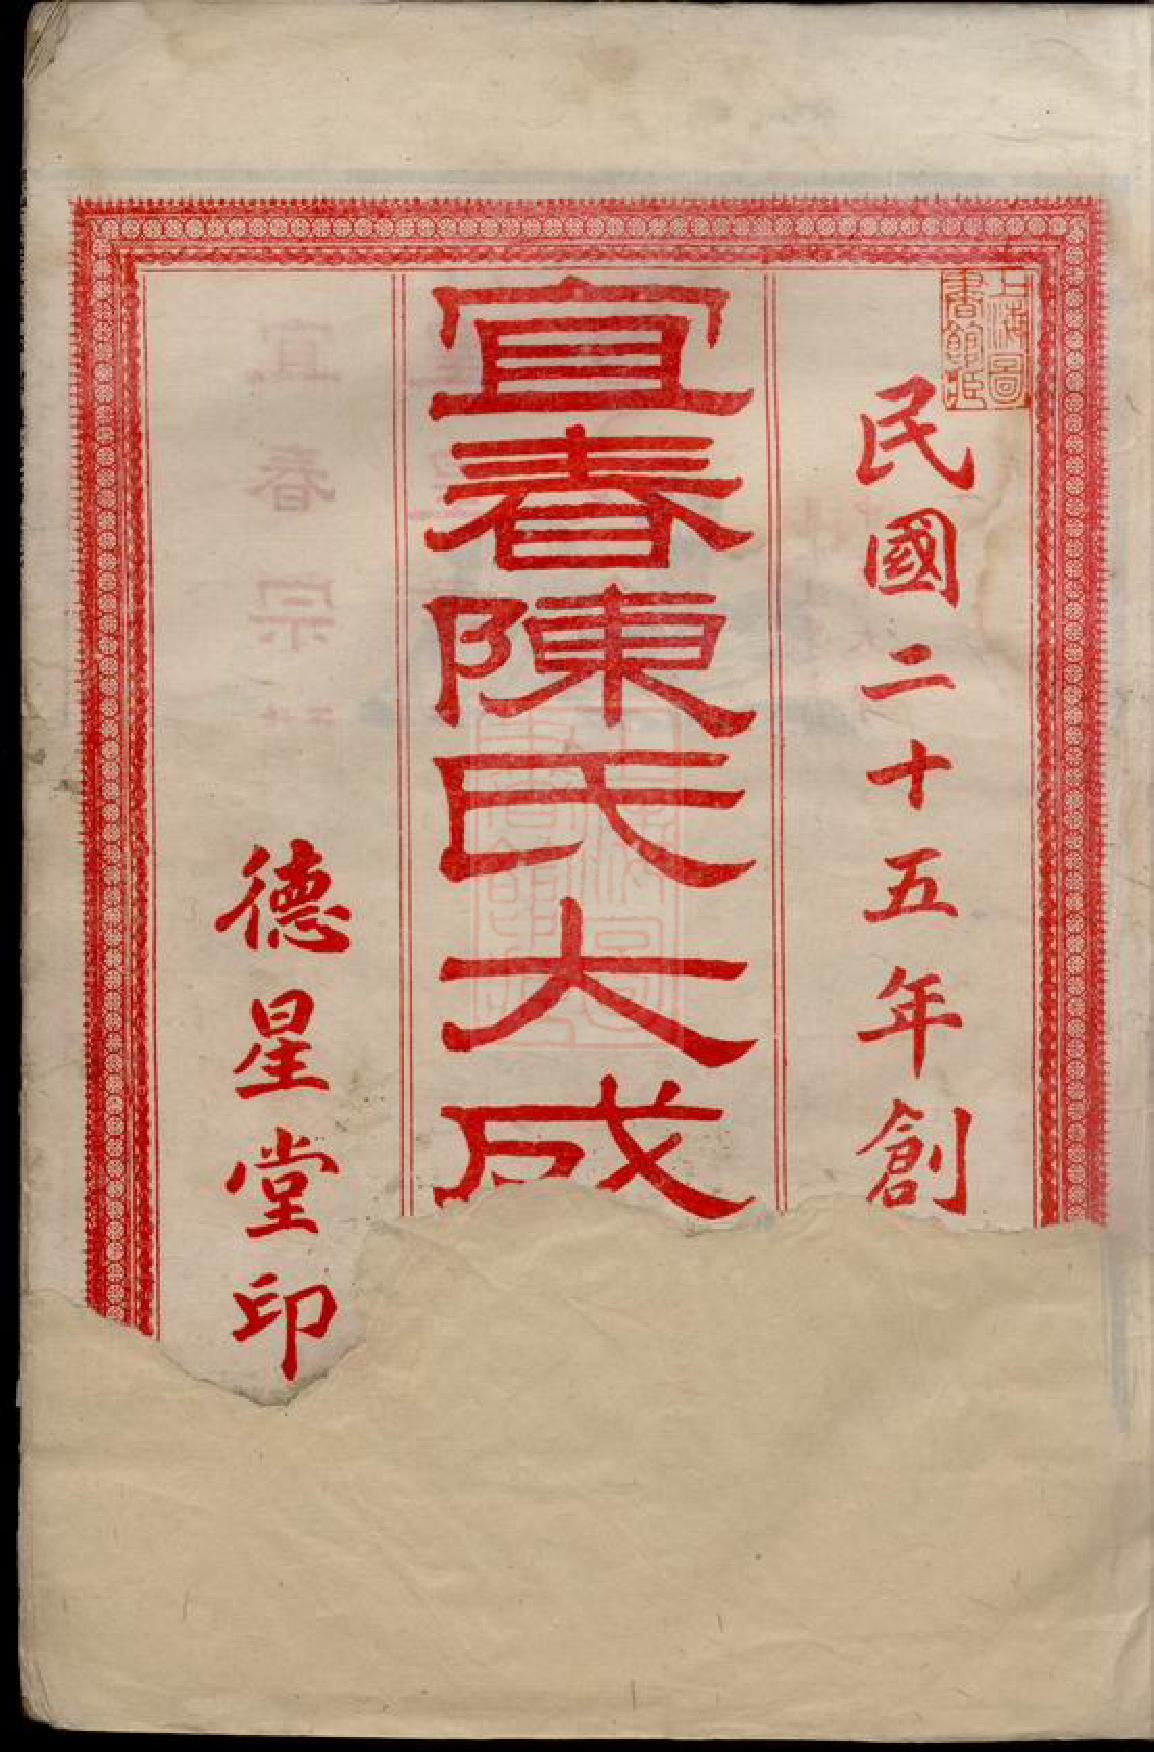 民國二十五年創
宜春陳氏大成
德星堂印
上海圖
書館藏
宜春宗